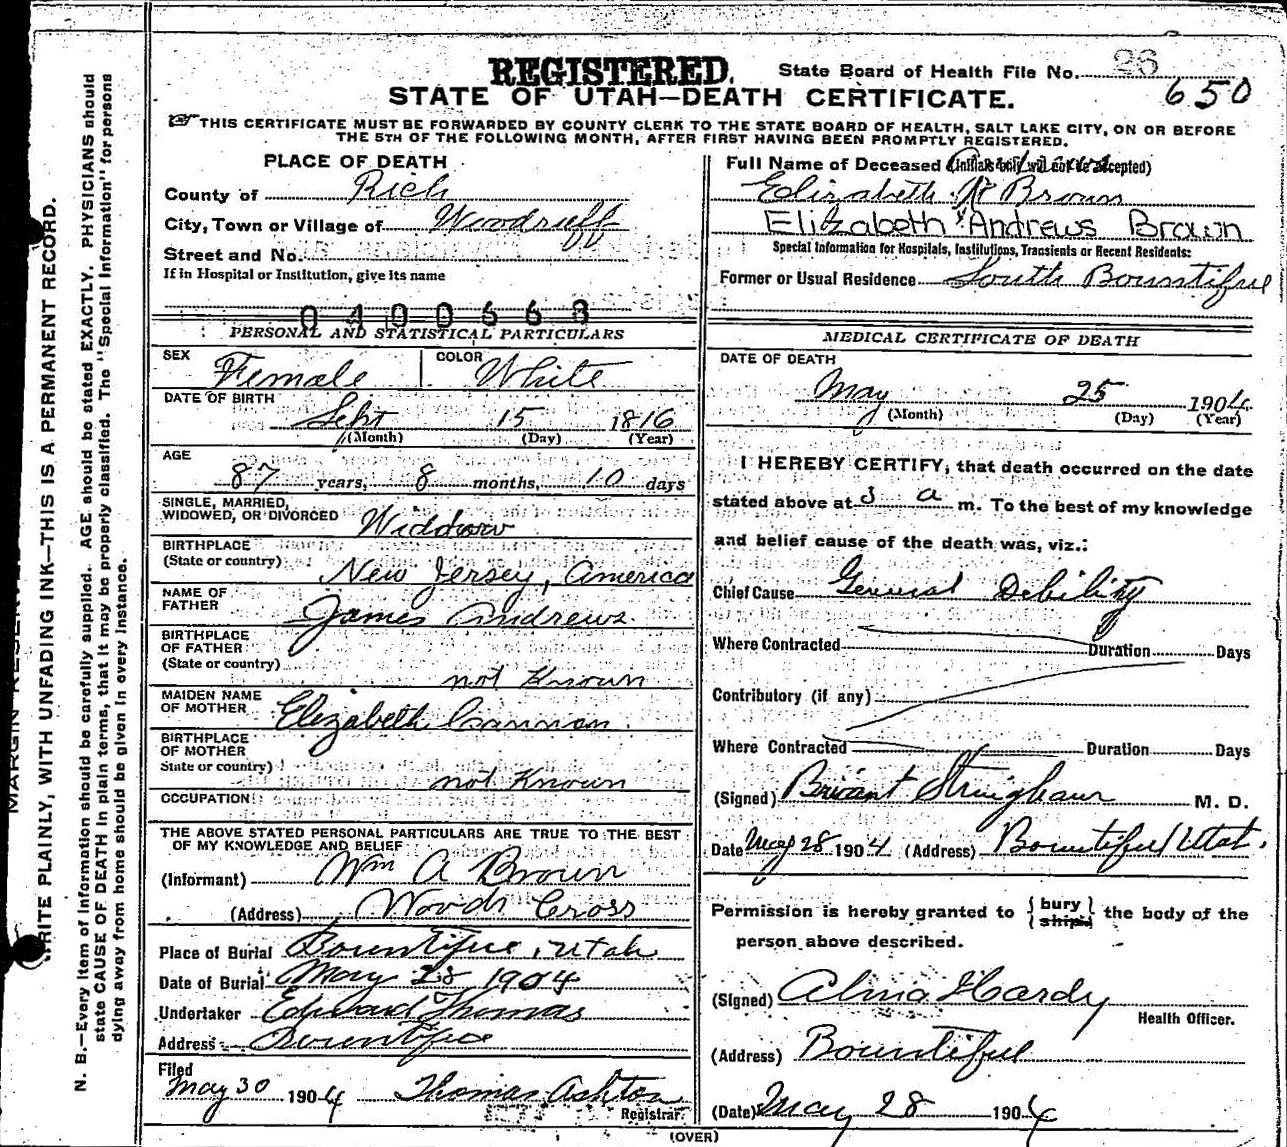 REGISTERED.
State Board of Health File No. 26
650
STATE OF UTAH—DEATH CERTIFICATE.
THIS CERTIFICATE MUST BE FORWARDED BY COUNTY CLERK TO THE STATE BOARD OF HEALTH, SALT LAKE CITY, ON OR BEFORE
THE 5TH OF THE FOLLOWING MONTH, AFTER FIRST HAVING BEEN PROMPTLY REGISTERED.
PLACE OF DEATH
County of Rich
City, Town or Village of Woodruff
Street and No.
If in Hospital or Institution, give its name
0400668
PERSONAL AND STATISTICAL PARTICULARS
SEX Female COLOR White
DATE OF BIRTH
Sept 15 1816
(Month) (Day) (Year)
AGE
87 years, 8 months, 10 days
SINGLE, MARRIED,
WIDOWED, OR DIVORCED Widdow
BIRTHPLACE
(State or country) New Jersey, America
NAME OF
FATHER James Andrews.
BIRTHPLACE
OF FATHER
(State or country) not Known
MAIDEN NAME
OF MOTHER Elizabeth Cannon.
BIRTHPLACE
OF MOTHER
State or country) not Known
OCCUPATION
THE ABOVE STATED PERSONAL PARTICULARS ARE TRUE TO THE BEST
OF MY KNOWLEDGE AND BELIEF
(Informant) Wm A Brown
(Address) Woods Cross
Place of Burial Bountiful, Utah
Date of Burial May 28 1904
Undertaker Edward Thomas
Address Bountiful
Filed
May 30 1904 Thomas Ashton
Registrar.
(OVER)
Full Name of Deceased (Initials only will not be accepted)
Elizabeth Brown
Elizabeth Andrews Brown
Special Information for Hospitals, Institutions, Transients or Recent Residents:
Former or Usual Residence South Bountiful
MEDICAL CERTIFICATE OF DEATH
DATE OF DEATH
May 25 1904
(Month) (Day) (Year)
I HEREBY CERTIFY, that death occurred on the date
stated above at 3 a m. To the best of my knowledge
and belief cause of the death was, viz.:
Chief Cause General Debility
Where Contracted Duration Days
Contributory (if any)
Where Contracted Duration Days
(Signed) Briant Stringham M. D.
Date May 28 1904 (Address) Bountiful Utah.
Permission is hereby granted to { bury ship } the body of the
person above described.
(Signed) Alma Hardy
Health Officer.
(Address) Bountiful
(Date) May 28 1904
WRITE PLAINLY, WITH UNFADING INK—THIS IS A PERMANENT RECORD.
N. B.—Every item of information should be carefully supplied. AGE should be stated EXACTLY. PHYSICIANS should
state CAUSE OF DEATH in plain terms, that it may be properly classified. The "Special Information" for persons
dying away from home should be given in every instance.